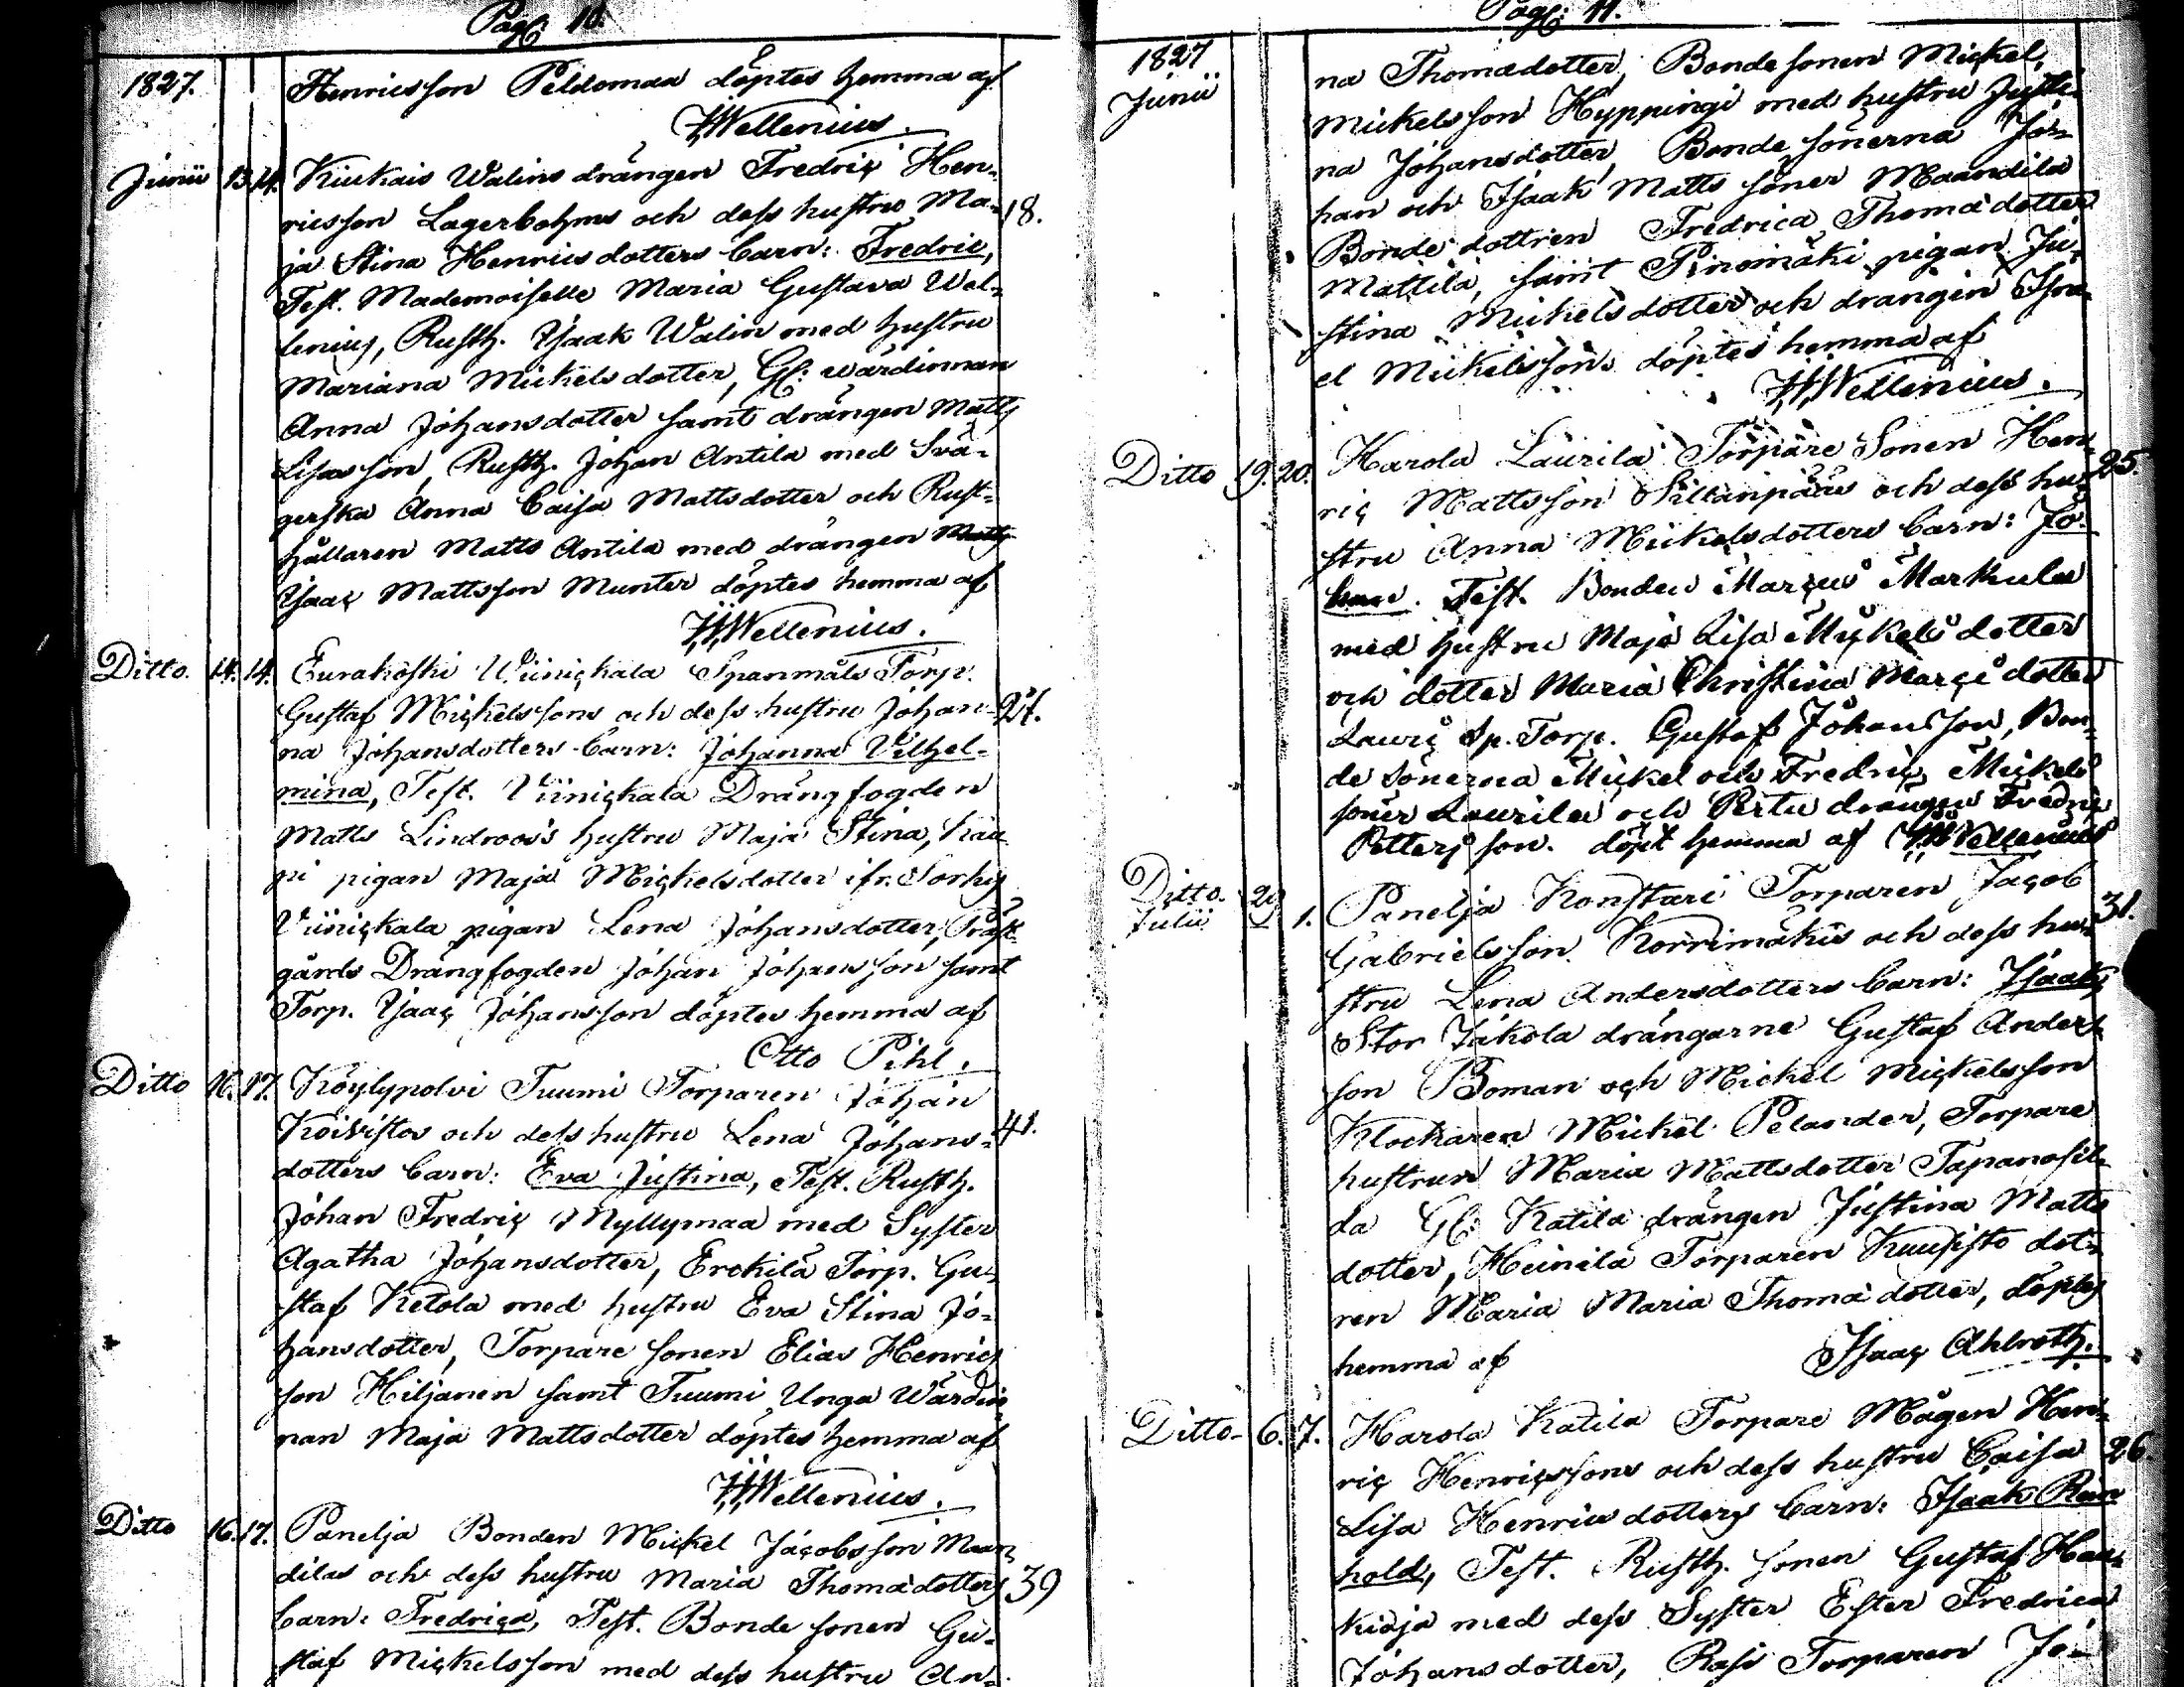 Pag: 10.
1827.
Henricsson Peldomaa döptes hemma af
Wellenius.
Junii 13. 14. Kiukais Walins drängen Fredric Hen-
ricsson Lagerbohms och dess hustru Ma- 18.
ja Stina Henricsdotters barn: Fredric,
Test. Mademoiselle Maria Gustava Wel-
lenius, Rusth. Isaak Walin med hustru
Mariana Mickelsdotter, Gl: wärdinnan
Anna Johansdotter samt drängen Matts
Rusth. Johan Antila med Swä-
gerska Anna Caisa Mattsdotter och Rust-
hållaren Matts Antila med drängen
Isaac Mattsson Munter döptes hemma af
Wellenius.
Ditto. 14. 14. Eurakoski Wiinickala Spanmåls Torp.
Gustaf Mickelssons och dess hustru Johan- 27.
na Johansdotters barn: Johanna Vilhel-
mina, Test. Viinickala Drängfogden
Matts Lindroos's hustru Maja Stina, Kau-
pi pigan Maja Mickelsdotter ifr. Sorkis
Viinickala pigan Lena Johansdotter, Präst-
gårds Drängfogden Johan Johansson samt
Torp. Isaac Johansson döptes hemma af
Otto Pihl.
Ditto 16. 17. Köylypolvi Tuumi Torparen Johan
Koivistos och dess hustru Lena Johans- 41.
dotters barn: Eva Justina, Test. Rusth.
Johan Fredric Myllymaa med Syster
Agatha Johansdotter, Erckilä Torp. Gu-
staf Ketola med hustru Eva Stina Jo-
hansdotter, Torpare sonen Elias Henrics
son Hiljanen samt Tuumi Unga Wärdin-
nan Maja Mattsdotter döptes hemma af
Wellenius.
Ditto 16. 17. Panelja Bonden Mickel Jacobsson Maan-
dilas och dess hustru Maria Thomadotters 39
barn: Fredrica, Test. Bonde sonen Gu-
staf Mickelsson med dess hustru An-
Pag: 11.
1827
Junii
na Thomadotter, Bonde sonen Mickel
Mickelsson Hyppingi med hustru Justi-
na Johansdotter, Bonde sönerna Jo-
han och Isaak Matts söner Maandila
Bonde dottren Fredrica Thomädotter
Mattila, samt Pinomäki pigan Ju-
stina Mickelsdotter och drängen Isra-
el Mickelsson döptes hemma af
Wellenius.
Ditto 19. 20. Harola Laurila Torpare Sonen Hen-
ric Mattsson Sillanpääs och dess hu- 25.
stru Anna Mickelsdotters barn: Jo-
han. Test. Bonden Marcus Markula
med hustru Maja Lisa Mickelsdotter
och dotter Maria Christina Marcidotter
Lauri Sp. Torp. Gustaf Johansson, Bon-
de sönerna Mickel och Fredric Mickels
söner Laurila och Pertu drängen Fredric
Pettersson. döpt hemma af Wellenius
Ditto. 29
Julii 1. Panelja Konstari Torparen Jacob
Gabrielsson Korrimäkis och dess hu- 31.
stru Lena Andersdotters barn: Isaak,
Stor Jakola drängarne Gustaf Anders-
son Boman och Mickel Mickelsson
Klockaren Mickel Pelander, Torpare
hustrun Maria Mattsdotter Tapanosil-
da Gl: Katila drängen Justina Matts
dotter, Heinila Torparen Kuusisto dot-
ren Maria Maria Thomädotter, döptes
hemma af Isaac Ahlroth.
Ditto- 6. 7. Harola Katila Torpare Mågen Hen-
ric Henricssons och dess hustru Caisa 26.
Lisa Henricsdotters barn: Isaak Rein
hold, Test. Rusth. sonen Gustaf Hau-
kioja med dess Syster Ester Fredrica
Johansdotter, Rasi Torparen Jo-